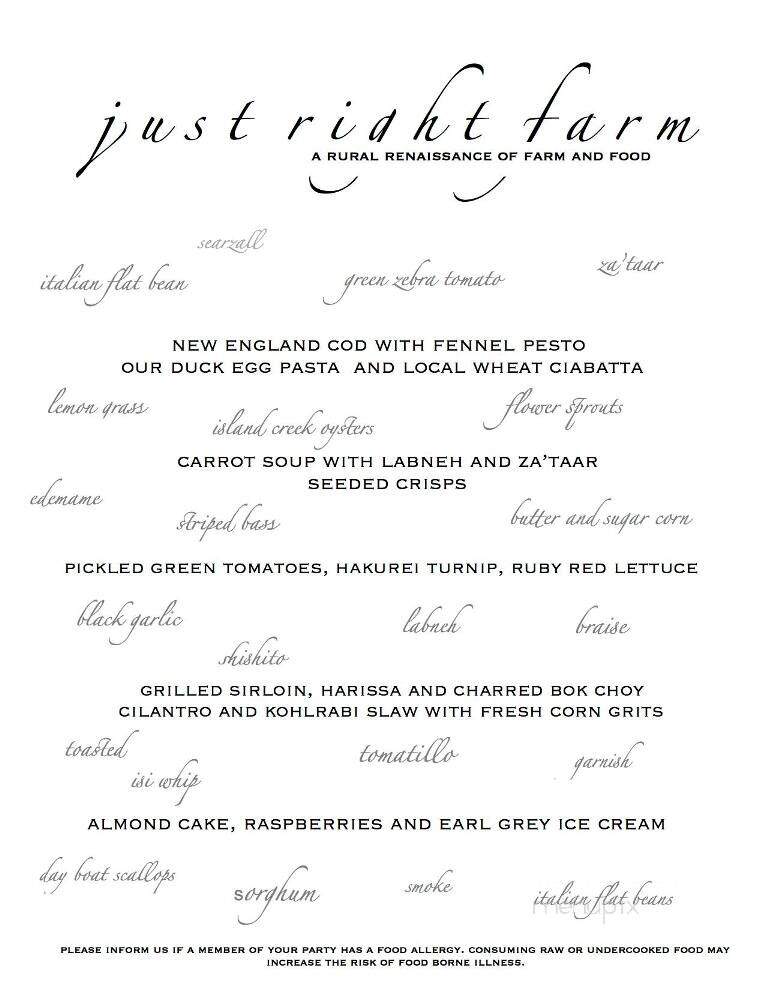 just right farm
A RURAL RENAISSANCE OF FARM AND FOOD
searzall
za'taar
italian flat bean
green zebra tomato
NEW ENGLAND COD WITH FENNEL PESTO
OUR DUCK EGG PASTA AND LOCAL WHEAT CIABATTA
lemon grass
flower sprouts
island creek oysters
CARROT SOUP WITH LABNEH AND ZA'TAAR
SEEDED CRISPS
edemame
striped bass
butter and sugar corn
PICKLED GREEN TOMATOES, HAKUREI TURNIP, RUBY RED LETTUCE
black garlic
labneh
braise
shishito
GRILLED SIRLOIN, HARISSA AND CHARRED BOK CHOY
CILANTRO AND KOHLRABI SLAW WITH FRESH CORN GRITS
toasted
tomatillo
garnish
isi whip
ALMOND CAKE, RASPBERRIES AND EARL GREY ICE CREAM
day boat scallops
sorghum
smoke
italian flat beans
menupix
PLEASE INFORM US IF A MEMBER OF YOUR PARTY HAS A FOOD ALLERGY. CONSUMING RAW OR UNDERCOOKED FOOD MAY
INCREASE THE RISK OF FOOD BORNE ILLNESS.